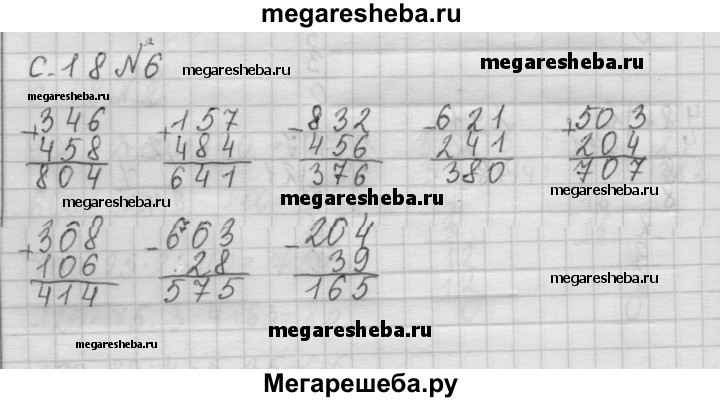 megaresheba.ru
с. 18 № 6
megaresheba.ru
megaresheba.ru
megaresheba.ru
+346 +157 -832 -621 +503
458 484 456 241 204
804 641 376 380 707
megaresheba.ru
megaresheba.ru
megaresheba.ru
+308 -603 -204
106 28 39
414 575 165
megaresheba.ru
megaresheba.ru
megaresheba.ru
Мегарешеба.ру